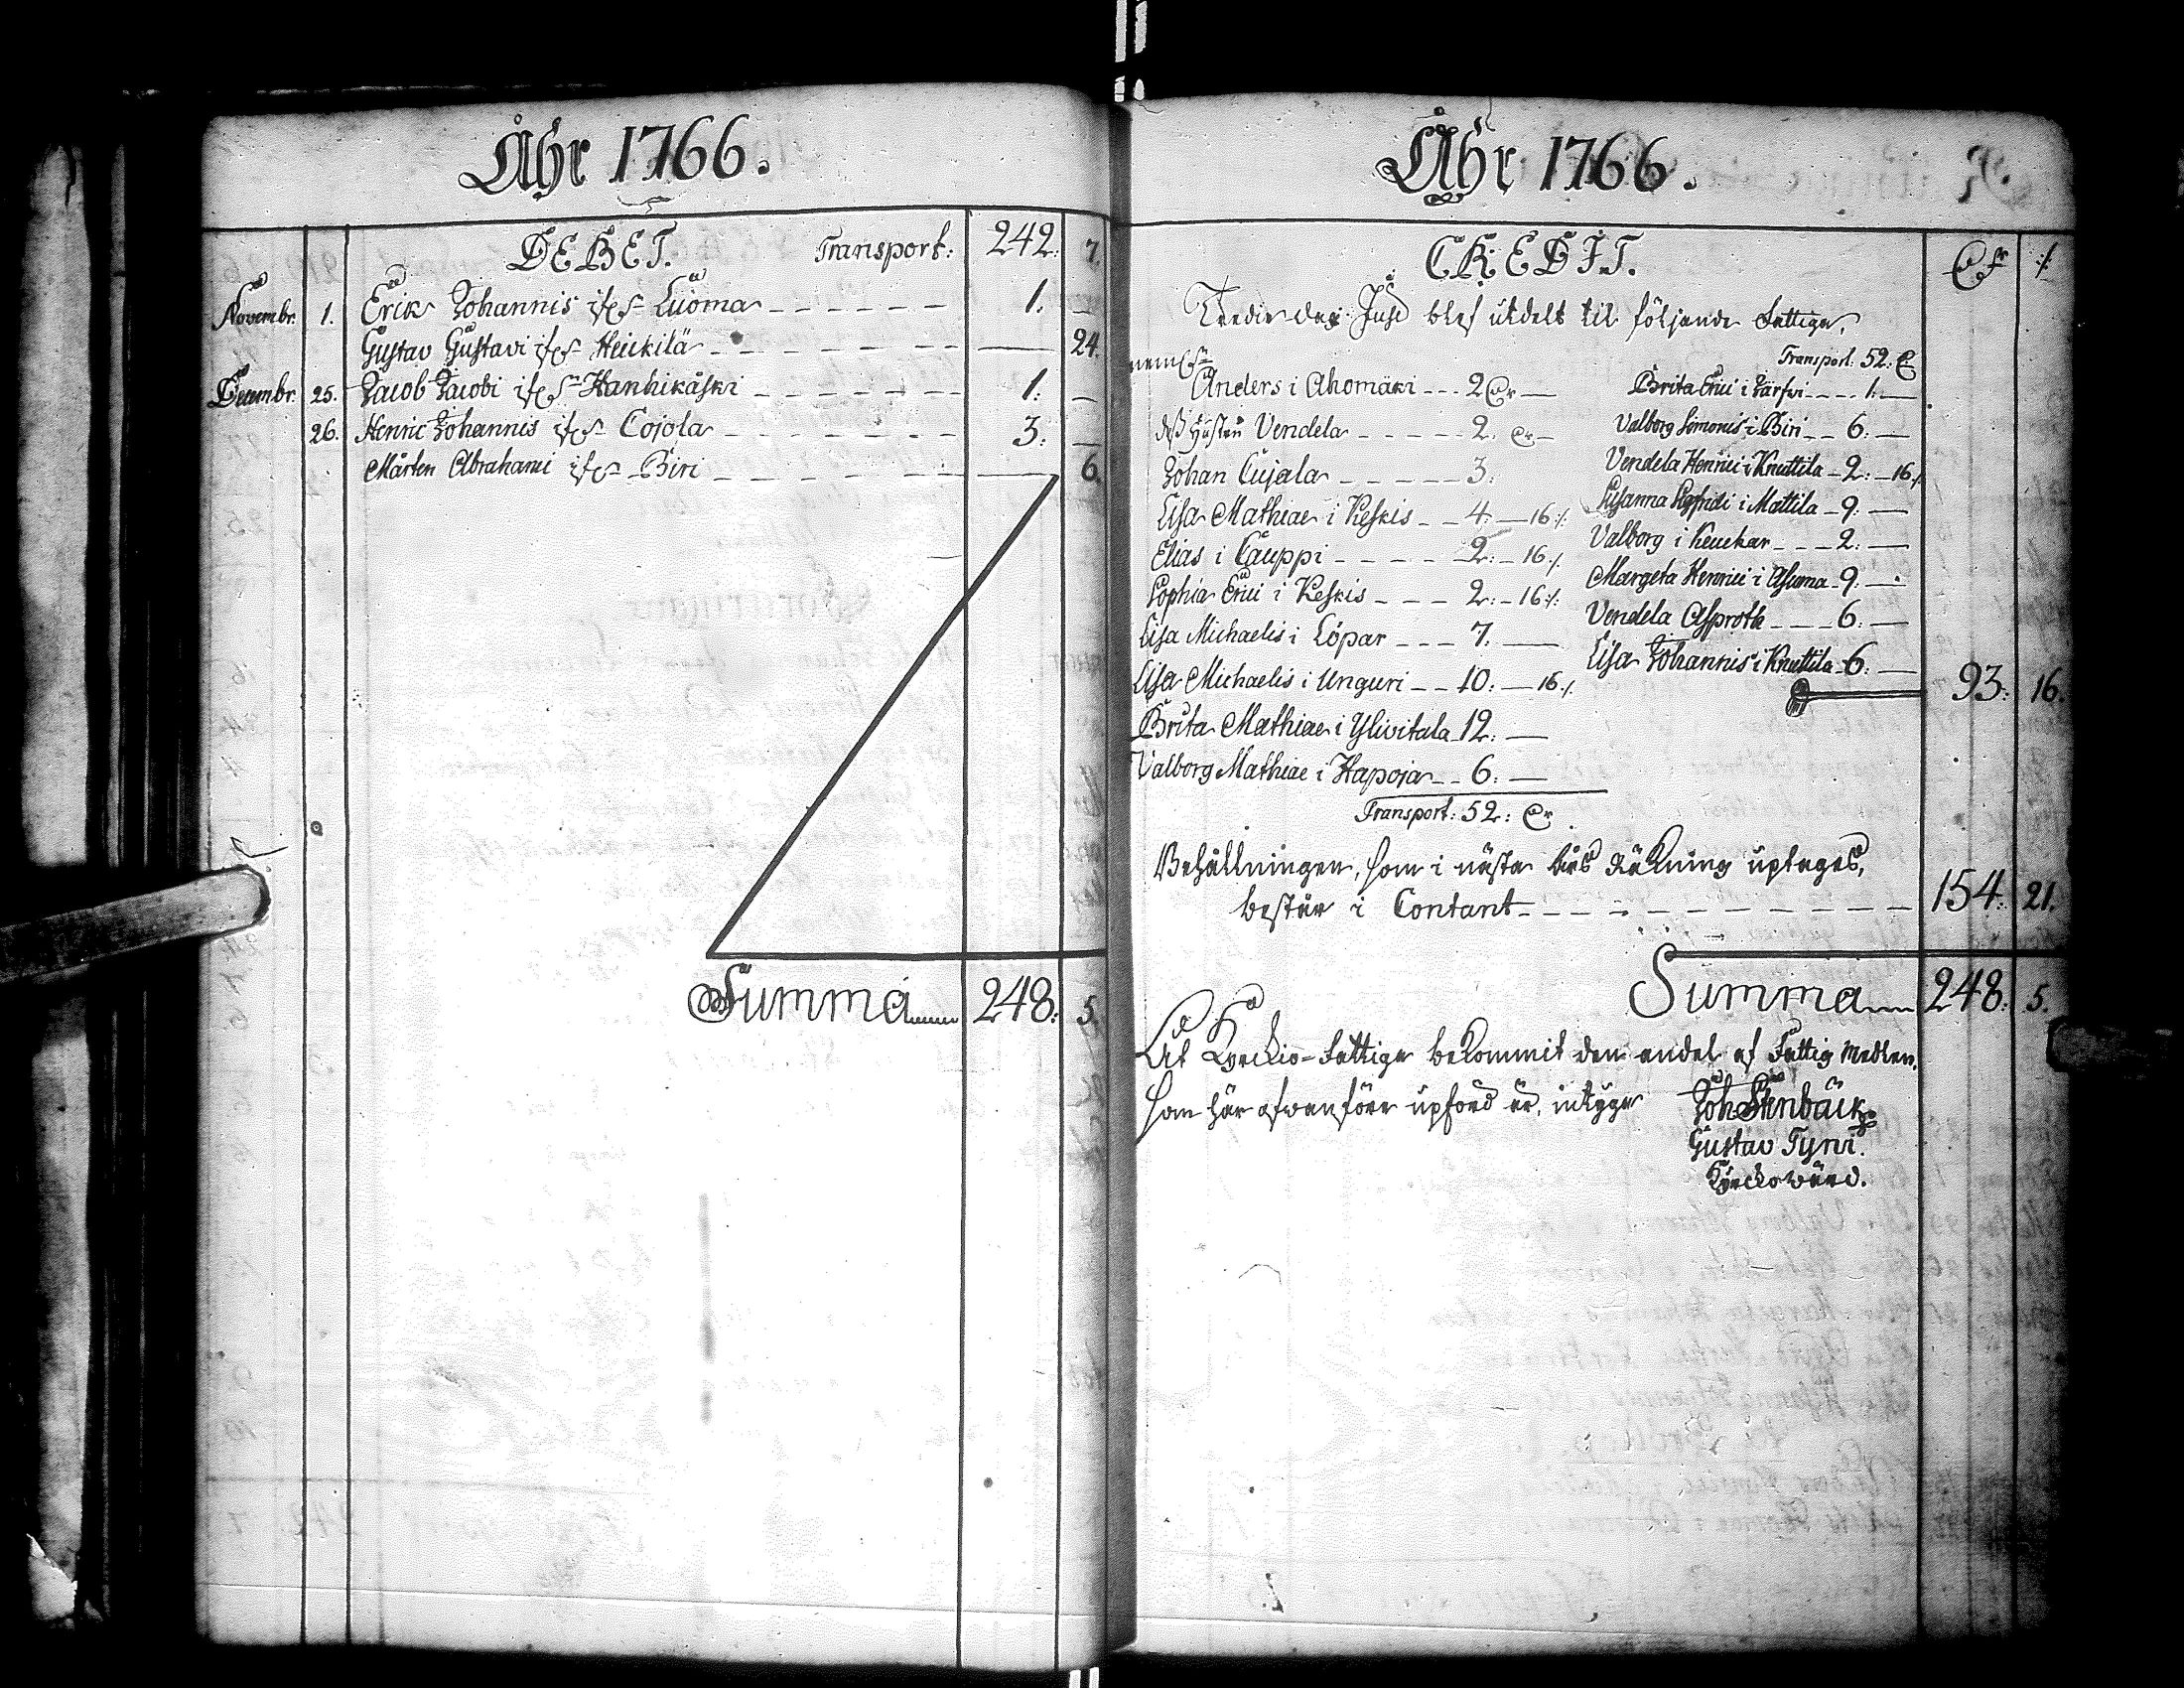 Åhr 1766.
DEBET. Transport: 242. 7.
Novembr. 1. Erik Johannis ifr Luoma 1. —
Gustav Gustavi ifr Heickilä — 24.
Decembr. 25. Jacob Jacobi ifr Hanhikåski 1. —
26. Henric Johannis ifr Cojola 3. —
Mårten Abrahami ifr Biri — 6.
Summa 248. 5.
Åhr 1766.
CREDIT.
Tredie dag Juhl blef utdelt til följande Fattige,
nemln
Anders i Ahomäki --- 2
dess Hustru Vendela ----- 2.
Johan Cujala ----- 3.
Lisa Mathiae i Keskis -- 4. — 16
Elias i Cauppi ---- 2: — 16
Sophia Erici i Keskis --- 2: — 16
Lisa Michaelis i Löpar --- 7. —
Lisa Michaelis i Unguri -- 10: — 16
Brita Mathiae i Ylivitala 12. —
Valborg Mathiae i Hapoja -- 6. —
Transport: 52:
Transport: 52:
Brita Erici i Järfvi ---- 1. —
Valborg Simonis i Biri -- 6. —
Vendela Henrici i Knuttila - 2: — 16
Susanna Sigfridi i Mattila - 9. —
Valborg i Keuckar --- 2. —
Margeta Henrici i Asuma - 9. —
Vendela Asproth --- 6. —
Lisa Johannis i Knuttila - 6. —
93. 16.
Behållningen, som i nästa års Räkning uptages,
består i Contant 154. 21.
Summa 248. 5.
At Kyrckio-Fattige bekommit den andel af Fattig Medlen,
som här ofwanföre upförd är, intygar Joh Stenbäck
Gustav Tyni.
Kyrckowärd.